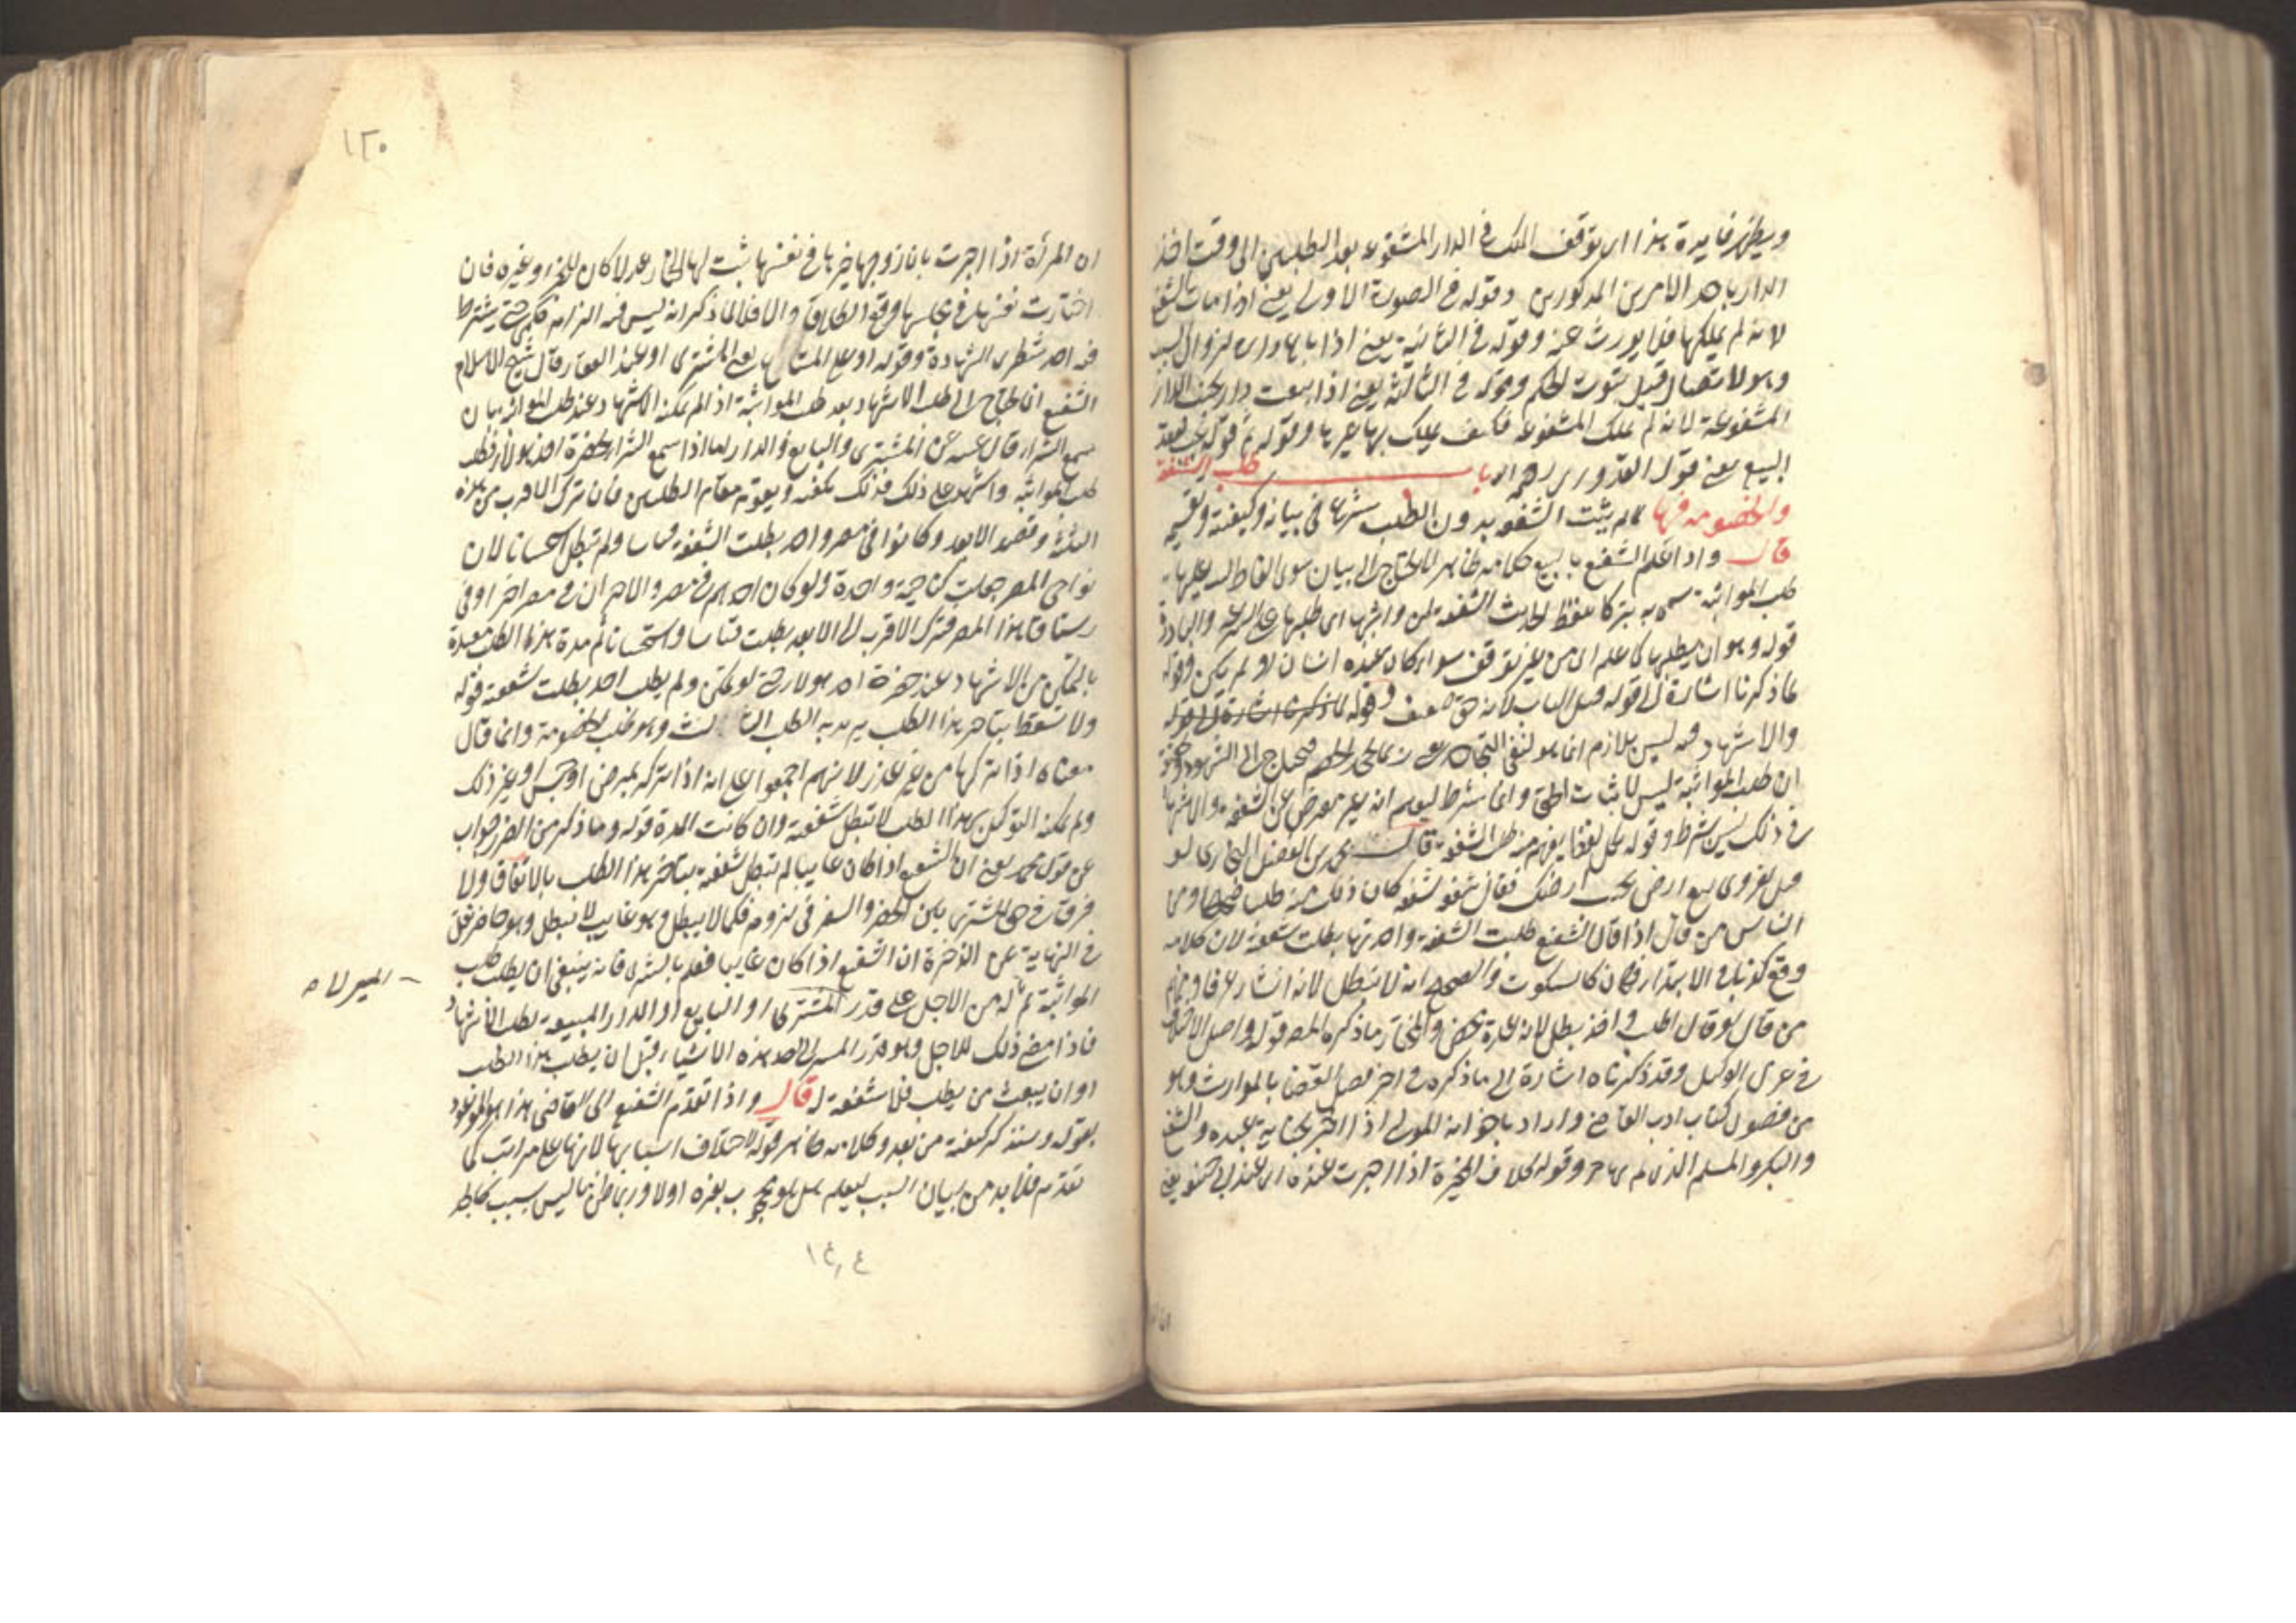 ويظهر فايدة هذا اى توقف الملك فى الدار المشفوعة بعد الطلبين الى وقت اخذ
الدار باحد الامرين المذكورين وقوله فى الصورة الاولى يعنى اذا مات الشفيع
لانه لم يملكها فلا يورث عنه وقوله فى الثانية يعنى اذا باع داره لزوال السبب
وهو الاتصال قبل ثبوت الحكم وقوله فى الثالثة يعنى اذا بيعت دار بجنب الدار
المشفوعة لانه لم يملك المشفوعة فكيف يملك بها غيرها وقوله ثم قوله تجب بعقد
البيع يعنى قول القدورى رحمه الله باب طلب الشفعة
والخصومة فيها لما لم يثبت الشفعة بدون الطلب شرع فى بيانه وكيفيته وتقسيمه
قال واذا علم الشفيع بالبيع كلامه ظاهر لا يحتاج الى بيان سوى الفاظ ننبه عليها
طلب المواثبة سمى به تبركا بلفظ الحديث الشفعة لمن واثبها اى طلبها على السرعة والمبادرة
قوله وهو ان يطلبها كما علم اى من غير توقف سواء كان عنده انسان او لم يكن وقوله
لما ذكرنا اشارة الى قوله قبل الباب لانه حق ضعيف وقوله لما ذكرنا اشارة الى قوله
والاشهاد فيه ليس بلازم انما هو لنفى التجاحد يعنى ربما يجحد الخصم فيحتاج الى الشهود
ان طلب المواثبة ليس لاثبات الحق وانما شرط ليعلم انه غير معرض عن الشفعة والاشهاد
فى ذلك ليس بشرط وقوله بكل لفظ يفهم منه طلب الشفعة قال محمد بن الفضل البخارى لو
قيل لقروى بيع ارض بجنب ارضك فقال شفعه شفعه كان ذلك منه طلبا صحيحا ومن
الناس من قال اذا قال الشفيع طلبت الشفعة واخذتها بطلت شفعته لان كلامه
وقع كذبا فى الابتداء فكان كالسكوت والصحيح انه لا تبطل لانه انشاء عرفا ومنهم
من قال لو قال اطلب واخذ بطل لانه عدة محض والمختار ما ذكره المص قوله واصل الاختلاف
فى عزل الوكيل وقد ذكرناه اشارة الى ما ذكره فى اخر فصل القضاء بالمواريث وهو
من فصول كتاب ادب القاضى واراد باخوانه المولى اذا اخبر بجناية عبده والشفيع
والبكر والمسلم الذى لم يهاجر وقوله بخلاف المخيرة اذا اخبرت عنده اى عند ابى حنيفة يعنى
ان المرأة اذا اخبرت بان زوجها خيرها فى نفسها ثبت لها الخيار عدلا كان المخبر او غيره فان
اختارت نفسها فى مجلسها وقع الطلاق والا فلا لما ذكر انه ليس فيه الزام حكم حتى يشترط
فيه احد شطرى الشهادة وقوله او على المبتاع يعنى المشترى او عند العقار قال شيخ الاسلام
الشفيع انما يحتاج الى طلب الاشهاد بعد طلب المواثبة اذا لم يمكنه الاشهاد عند طلب المواثبة بان
سمع الشراء حال غيبته عن المشترى والبايع والدار اما اذا سمع الشراء بحضرة احد هؤلاء فطلب
طلب المواثبة واشهد على ذلك فذلك يكفيه ويقوم مقام الطلبين فان ترك الاقرب من هذه
الثلثة وقصد الابعد وكانوا فى مصر واحد بطلت الشفعة قياسا ولم تبطل استحسانا لان
نواحى المصر جعلت كناحية واحدة ولو كان احدهم فى مصر والاخران فى مصر اخر او فى
رستاق هذا المصر فترك الاقرب الى الابعد بطلت قياسا واستحسانا ثم مدة هذا الطلب مقدرة
بالتمكن من الاشهاد عند حضرة احد هؤلاء حتى لو تمكن ولم يطلب احد بطلت شفعته قوله
ولا تسقط بتاخير هذا الطلب يريد به الطلب الثالث وهو طلب الخصومة وانما قال
معناه اذا تركها من غير عذر لانهم اجمعوا على انه اذا تركه بمرض او حبس او غير ذلك
ولم يمكنه التوكيل بهذا الطلب لا تبطل شفعته وان كانت المدة قوله وما ذكر من الضرر جواب
عن قول محمد يعنى ان الشفيع اذا كان غايبا لم تبطل شفعته بتاخير هذا الطلب بالاتفاق ولا
فرق فى حق المشترى بين الحضر والسفر فى لزومه فكما لا يبطل وهو غايب لا تبطل وهو حاضر نقل
فى النهاية عن الذخيرة ان الشفيع اذا كان غايبا فعلم بالشرى فانه ينبغى ان يطلب طلب
المواثبة ثم له من الاجل على قدر المسير الى المشترى او البايع او الدار المبيعة لطلب الاشهاد
المسير لا ه
فاذا مضى ذلك الاجل وهو قدر المسير الى احد هذه الاشياء قبل ان يطلب هذا الطلب
او ان يبعث من يطلب فلا شفعة له قال واذا تقدم الشفيع الى القاضى هذا هو الموعود
بقوله وسنذكر كيفيته من بعد وكلامه ظاهر قوله لاختلاف اسبابها لانها على مراتب كما
تقدم فلا بد من بيان السبب ليعلم هل هو محجوب بغيره اولا وربما ظن ما ليس بسبب كالجار
١٢٠
١٤٠٤